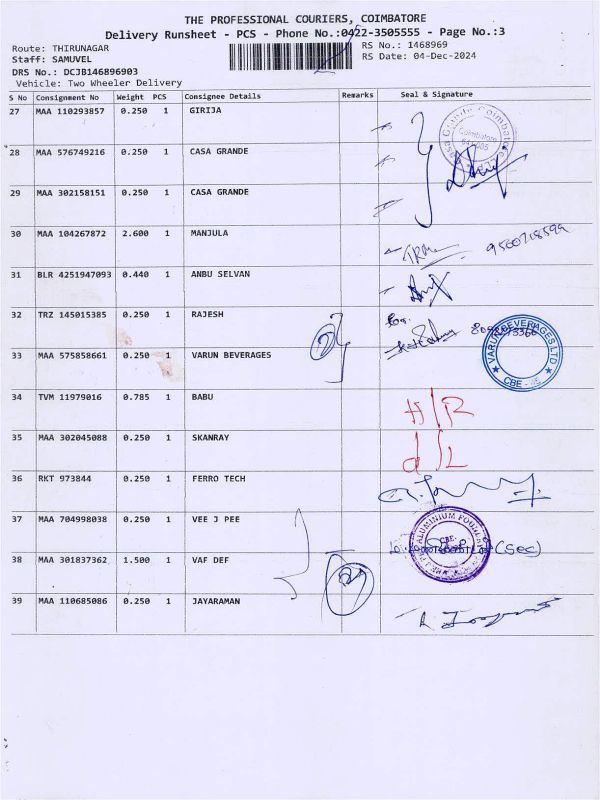 THE PROFESSIONAL COURIERS, COIMBATORE
Delivery Runsheet - PCS - Phone No.:0422-3505555 - Page No.:3
Route: THIRUNAGAR
RS No.: 1468969
Staff: SAMUVEL
RS Date: 04-Dec-2024
DRS No.: DCJB146896903
Vehicle: Two Wheeler Delivery
S No Consignment No Weight PCS Consignee Details Remarks Seal & Signature
27 MAA 110293857 0.250 1 GIRIJA
28 MAA 576749216 0.250 1 CASA GRANDE
29 MAA 302158151 0.250 1 CASA GRANDE
30 MAA 104267872 2.600 1 MANJULA
31 BLR 4251947093 0.440 1 ANBU SELVAN
32 TRZ 145015385 0.250 1 RAJESH
33 MAA 575858661 0.250 1 VARUN BEVERAGES
VARUN BEVERAGES LTD
CBE
34 TVM 11979016 0.785 1 BABU H/R
35 MAA 302045088 0.250 1 SKANRAY d/L
36 RKT 973844 0.250 1 FERRO TECH
37 MAA 704998038 0.250 1 VEE J PEE
ALUMINIUM
CBE
(Sec)
38 MAA 301837362 1.500 1 VAF DEF
39 MAA 110685086 0.250 1 JAYARAMAN